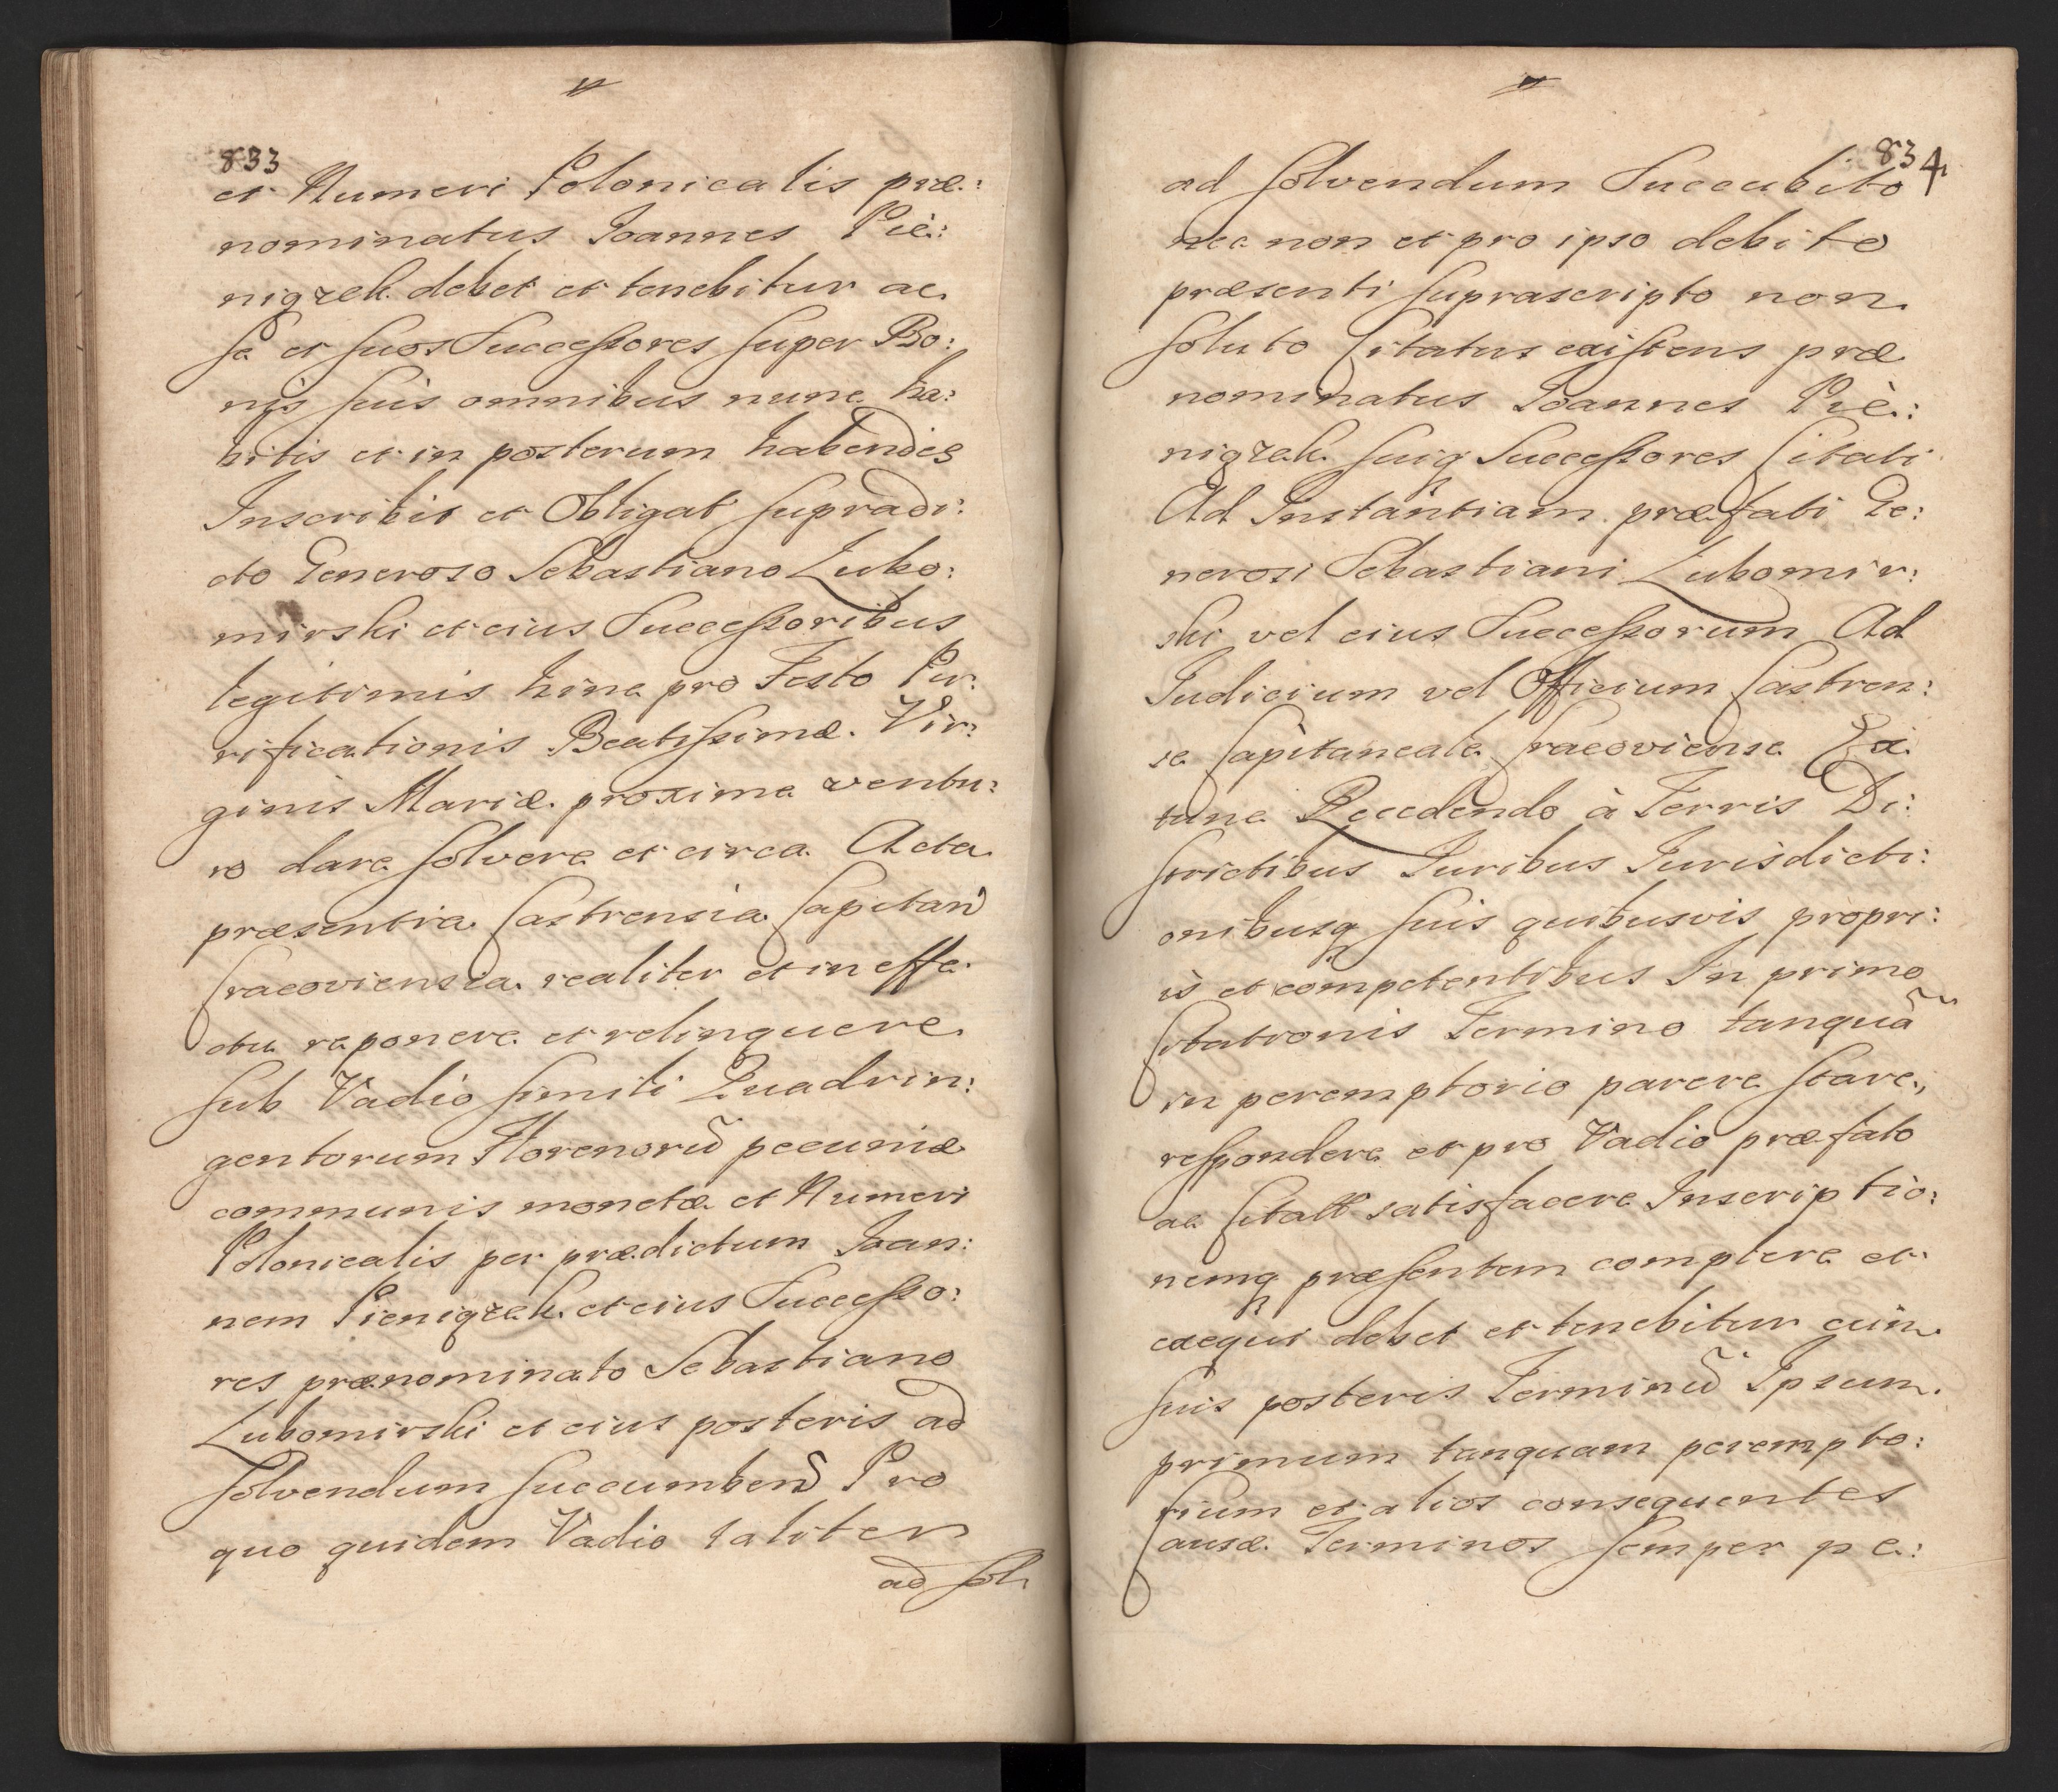 833
et Numeri Polonicalis præ:
nominatus Joannes Piè:
niążek debet et tenebitur ac
se et suos Successores super Bo:
nis suis omnibus nunc ha:
bitis et in posterum habendis
Inscribit et Obligat supradi:
cto Generoso Sebastiano Lubo:
mirski et eius Successoribus
legitimis hinc pro Festo Pu:
rificationis Beatissimæ Vir:
ginis Mariæ proxime ventu:
ro dare solvere et circa Acta
præsentia Castrensia Capitan̄
Cracoviensia realiter et in effe
ctu reponere et relinquere
sub Vadio simili Quadrin:
gentorum Florenorū pecuniæ
communis monetæ et Numeri
Polonicalis per prædictum Joan:
nem Pieniążek et eius Successo:
res prænominato Sebastiano
Lubomirski et eius posteris ad
solvendum succumben̄ Pro
quo quidem Vadio taliter
ad sol
834
ad solvendum Succubito
nec non et pro ipso debito
præsenti suprascripto non
soluto Citatus existens præ
nominatus Joannes Piè:
niążek suiq Successores Citati
Ad Instantiam præfati Ge:
nerosi Sebastiani Lubomir:
ski vel eius Successorum Ad
Judicium vel Officium Castren:
se Capitaneale Cracoviense Ex
tunc Recedendo à Terris Di:
strictibus Juribus Jurisdicti:
onibusq suis quibusvis propri:
is et competentibus In primo
Citationis Termino tanquā
in peremptorio parere stare,
respondere et pro Vadio præfato
ac Citatt satisfacere Inscriptio:
nemq præsentem complere et
exequi debet et tenebitur cum
suis posteris Terminū Ipsum
primum tanquam perempto:
rium et alios consequentes
Causæ Terminos semper pe: